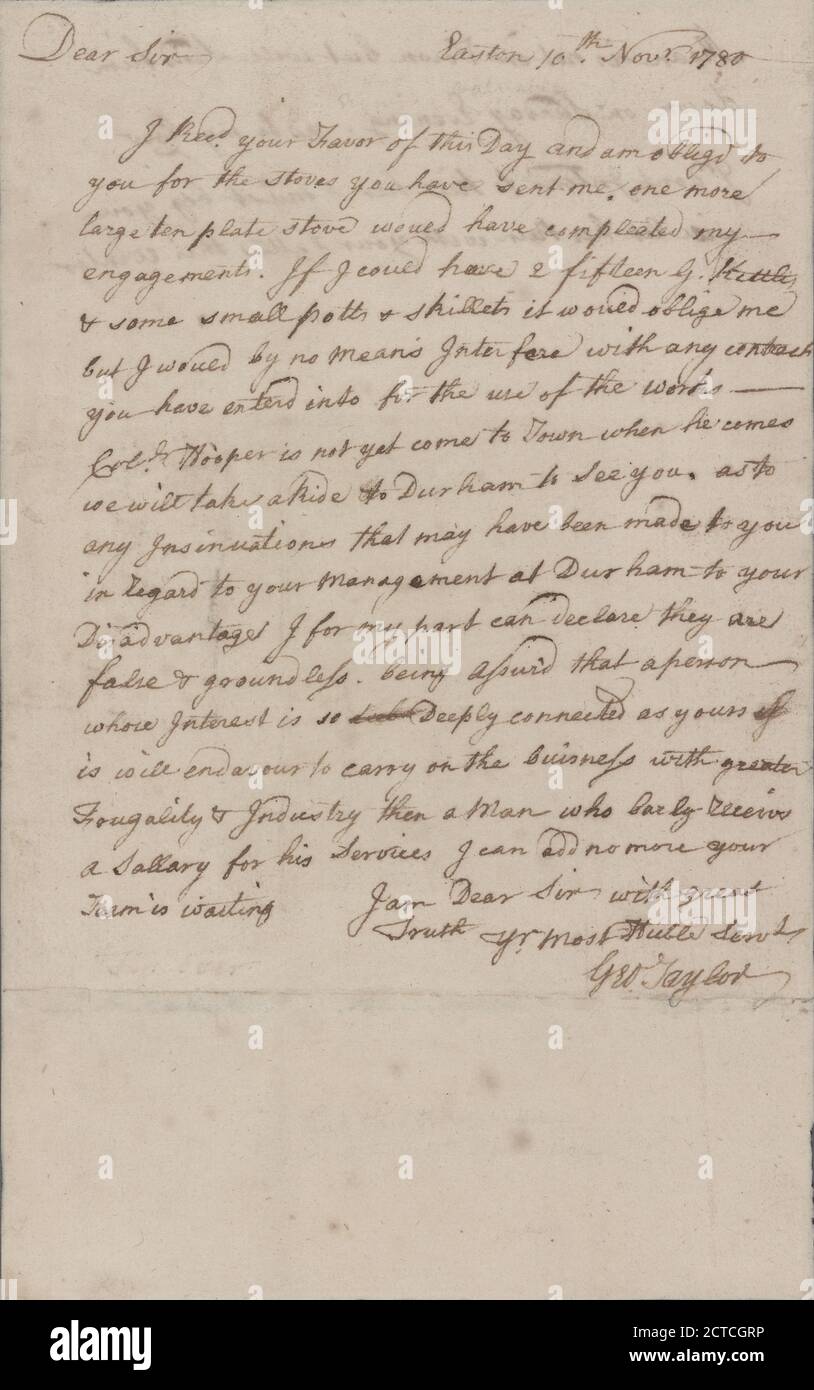 Dear Sir Easton 10th Novr 1780
I Recd. your Favor of this Day and am obligd to
you for the stoves you have sent me. one more
large ten plate stove would have compleated my
engagements. If I could have 2 fifteen G. Kittles
& some small potts & skillets it would oblige me
but I would by no means Interfere with any contract
you have enterd into for the use of the works
Coll. Hooper is not yet come to Town when he comes
we will take a Ride to Durham to see you. as to
any Insinuations that may have been made to you
in regard to your Management at Durham to your
Disadvantage I for my part can declare they are
false & groundless. being assurd that a person
whose Interest is so Deeply connected as yours
is will endavour to carry on the buisness with greater
Frugality & Industry then a Man who barly receivs
a Sallary for his Services I can add no more your
Team is waiting I am Dear Sir with great
Truth Yr. Most Huble Servt
Geo. Taylor
alamy
a
Image ID: 2CTCGRP
www.alamy.com